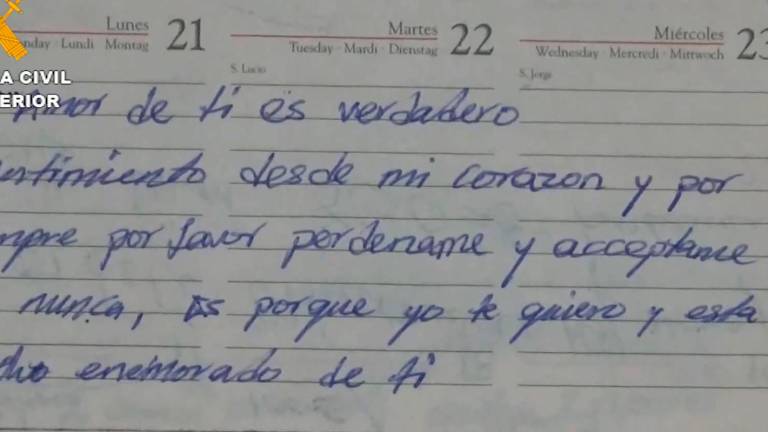 Lunes 21
nday · Lundi · Montag
Martes 22
Tuesday · Mardi · Dienstag
S. Lucio
Miércoles 23
Wednesday · Mercredi · Mittwoch
S. Jorge
A CIVIL
ERIOR
Amor de ti es verdadero
entimiento desde mi corazon y por
mpre por favor perdename y acceptame
nunca, es porque yo te quiero y esta
cho enemorado de ti